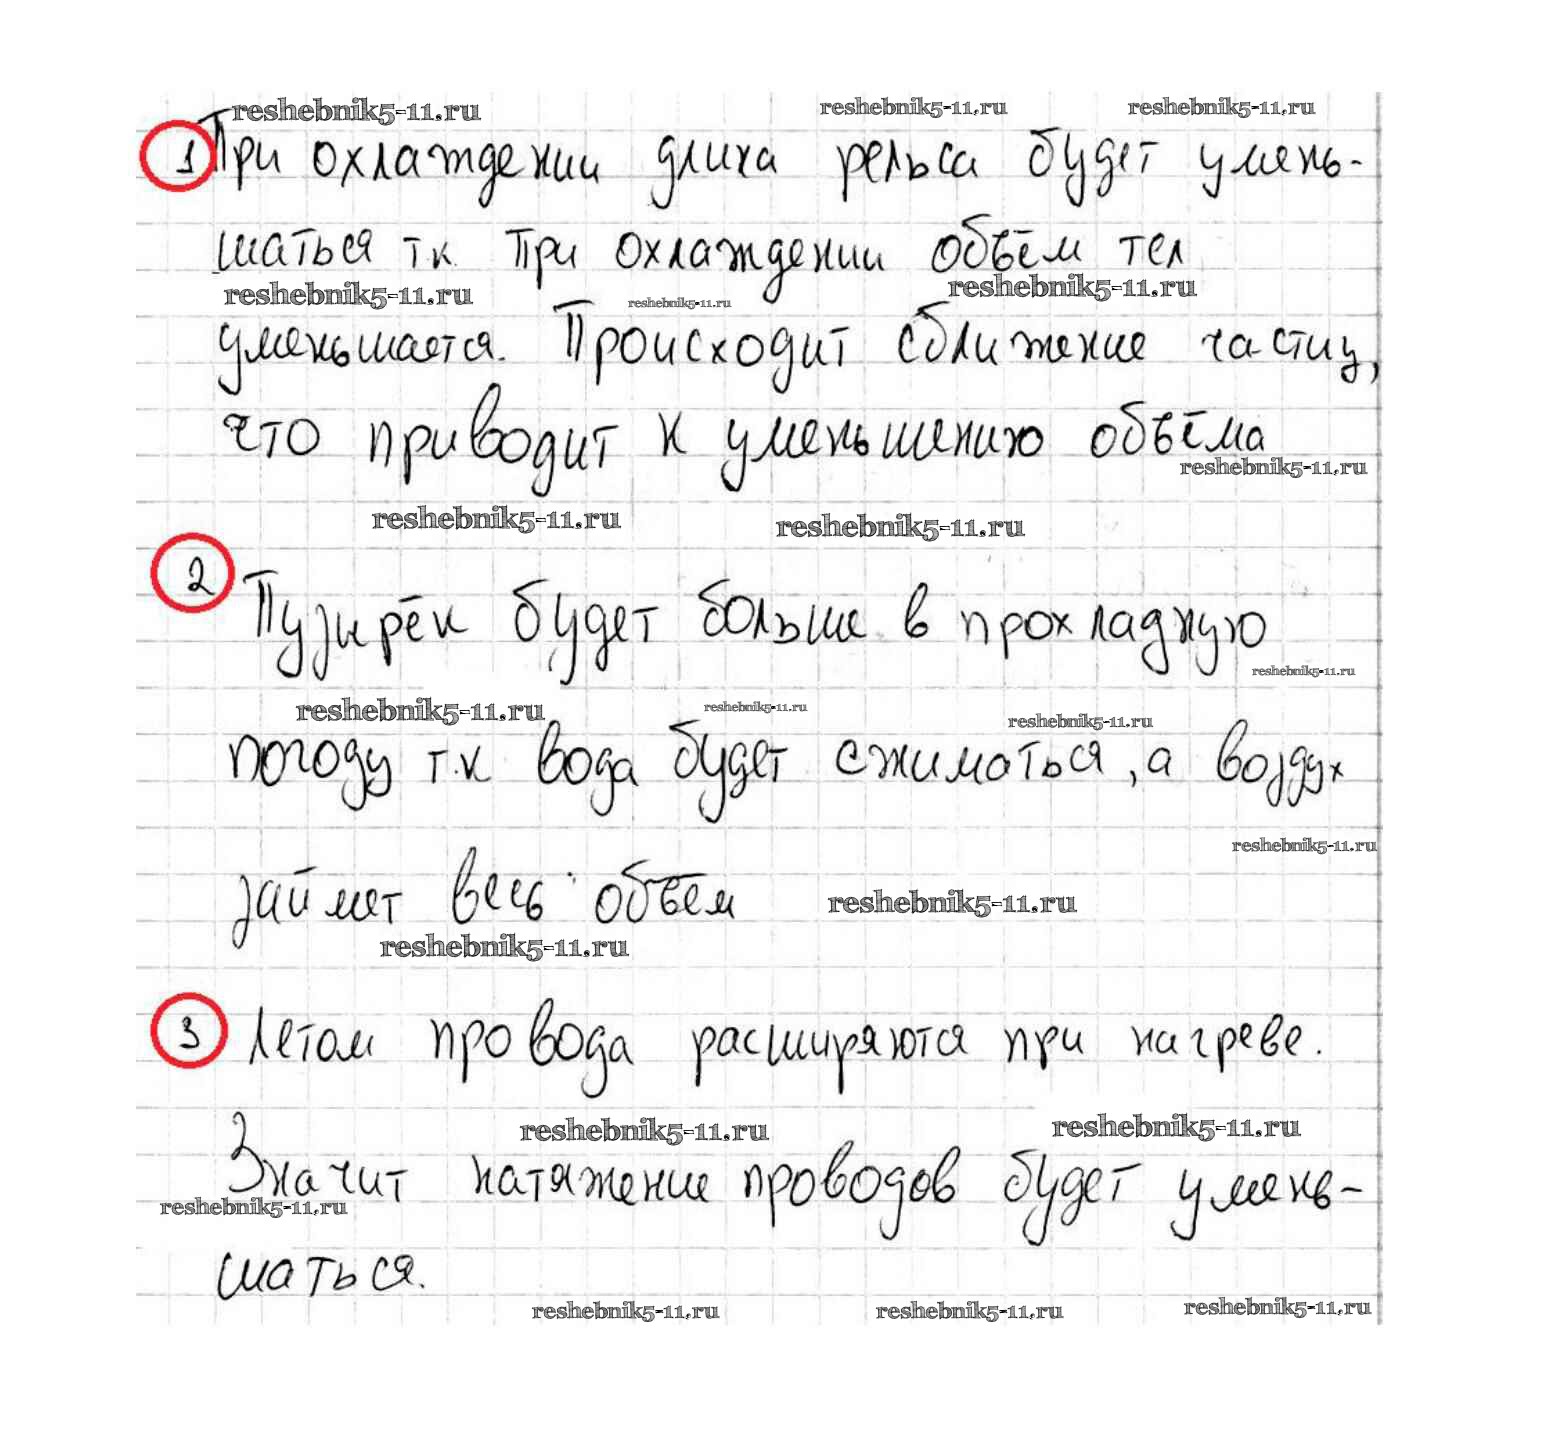 reshebnik5-11.ru reshebnik5-11.ru reshebnik5-11.ru
1 При охлаждении длина рельса будет умень-
шаться т к при охлаждении объём тел
reshebnik5-11.ru reshebnik5-11.ru reshebnik5-11.ru
уменьшается. Происходит сближение частиц,
что приводит к уменьшению объёма
reshebnik5-11.ru
reshebnik5-11.ru reshebnik5-11.ru
2 Пузырёк будет больше в прохладную
reshebnik5-11.ru
reshebnik5-11.ru reshebnik5-11.ru reshebnik5-11.ru
погоду т.к вода будет сжиматься, а воздух
reshebnik5-11.ru
займет весь объем
reshebnik5-11.ru
reshebnik5-11.ru
3 Летом провода расширяются при нагреве.
reshebnik5-11.ru reshebnik5-11.ru
Значит натяжение проводов будет умень-
reshebnik5-11.ru
шаться.
reshebnik5-11.ru reshebnik5-11.ru reshebnik5-11.ru